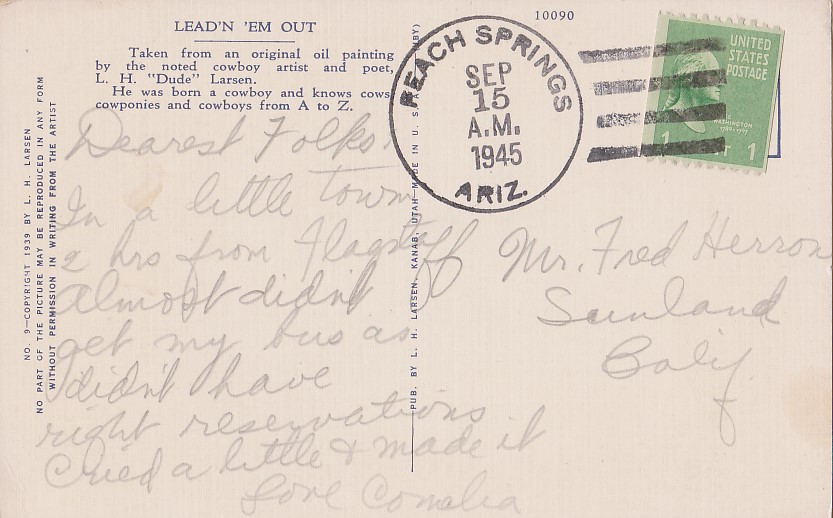 LEAD'N 'EM OUT
Taken from an original oil painting
by the noted cowboy artist and poet,
L. H. "Dude" Larsen.
He was born a cowboy and knows cows,
cowponies and cowboys from A to Z.
10090
PEACH SPRINGS
SEP
15
A.M.
1945
ARIZ.
UNITED
STATES
POSTAGE
WASHINGTON
1789-1797
1 1
NO. 9—COPYRIGHT 1939 BY L. H. LARSEN
NO PART OF THE PICTURE MAY BE REPRODUCED IN ANY FORM
WITHOUT PERMISSION IN WRITING FROM THE ARTIST
PUB. BY L. H. LARSEN, KANAB, UTAH—MADE IN U. S. A.
Dearest Folks:
In a little town
2 hrs from Flagstaff
almost didn't
get my bus as
didn't have
right reservations
Cried a little & made it
Love
Mr. Fred Herron
Sunland
Calif